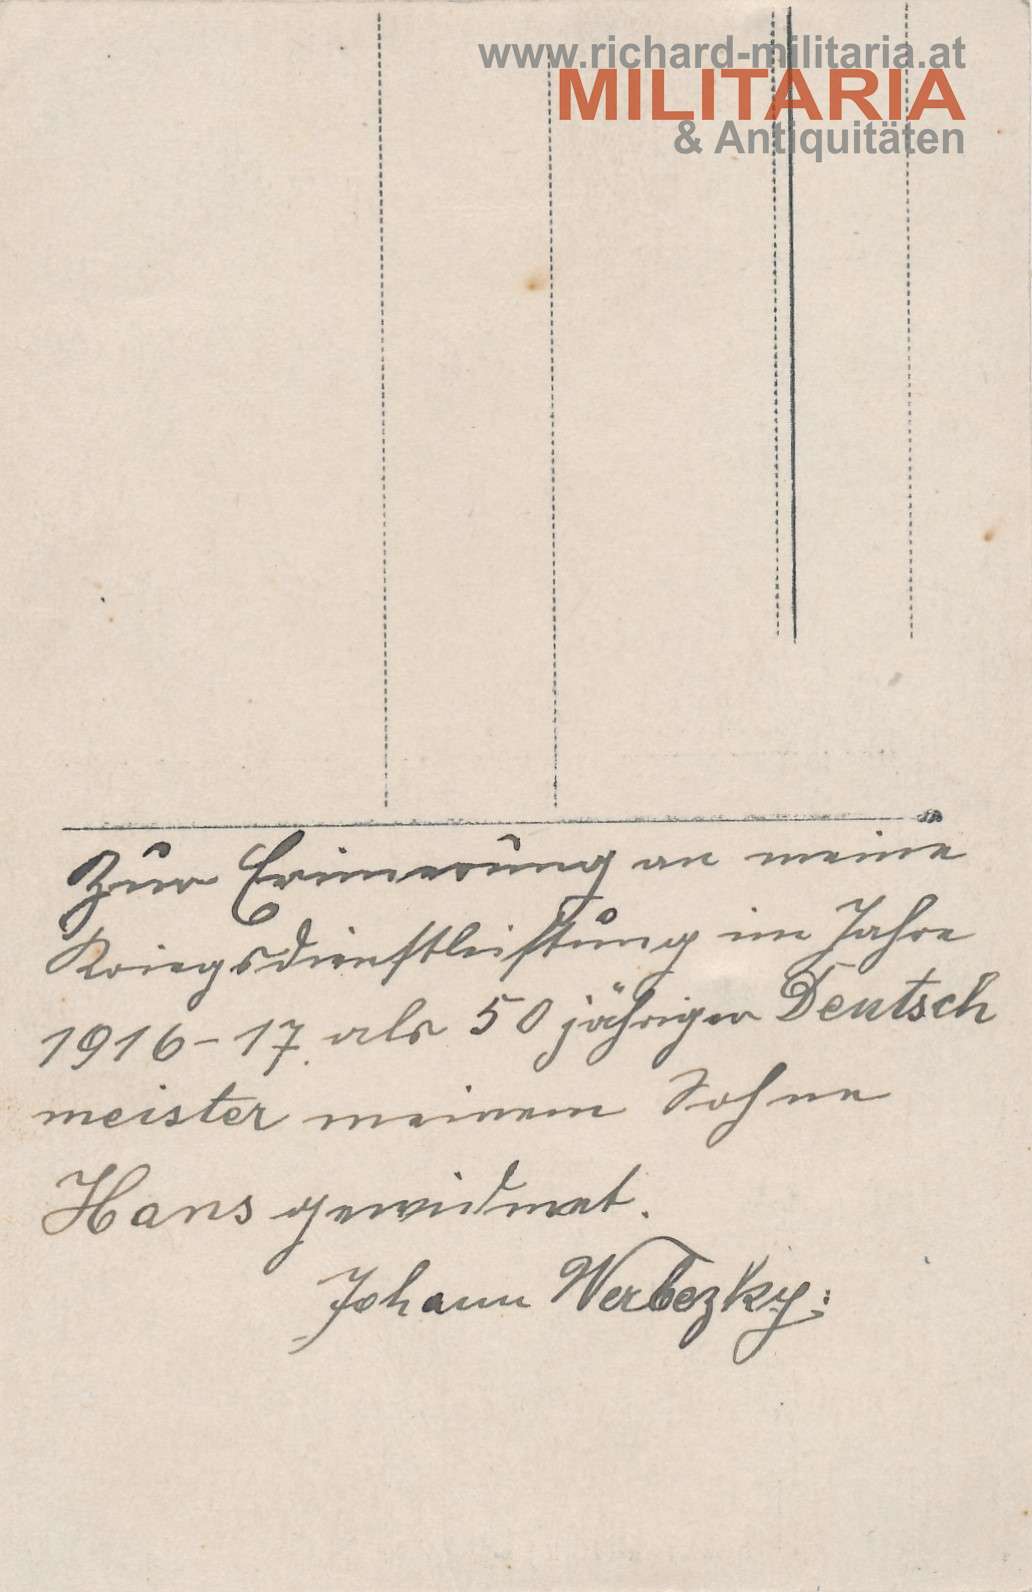 www.richard-militaria.at
MILITARIA
& Antiquitäten
Zur Erinnerung an meine
Kriegsdienstleistung im Jahre
1916-17. als 50 jähriger Deutsch
meister meinem Sohne
Hans gewidmet.
Johann Werbezky.